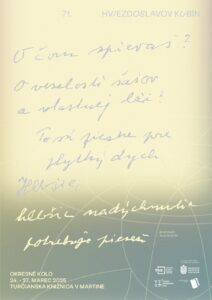 71. HVIEZDOSLAVOV KUBÍN
O čom spievaš?
O veselosti šašov
a vlastnej lži?
To sú piesne pre
plytký dych
hlbšie nadýchnutie
potrebuje pieseň
OKRESNÉ KOLO
24. - 27. MAREC 2025
TURČIANSKA KNIŽNICA V MARTINE